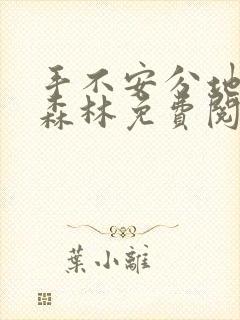 手不安分地
森林免費閱
葉小離